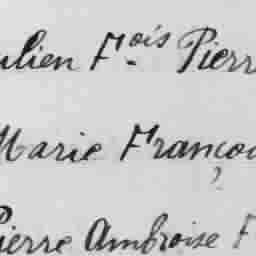 ulien F.ois Pierr
Marie Françoi
Pierre Ambroise F